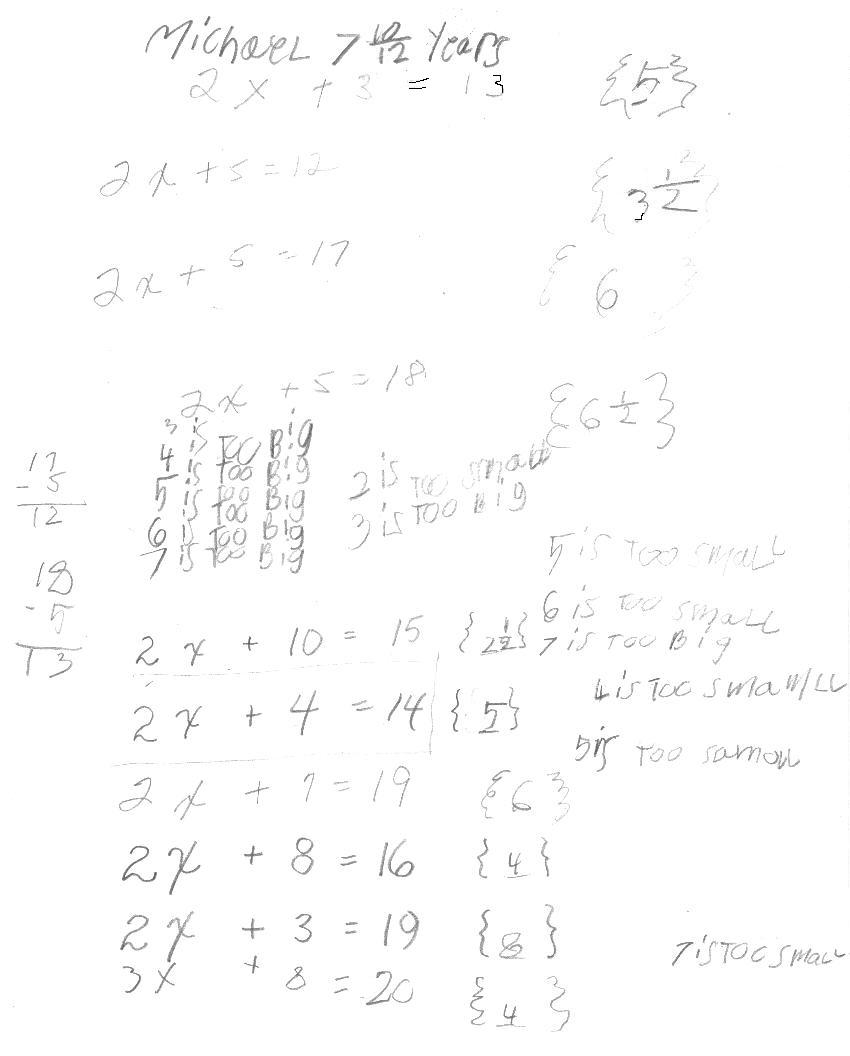 Michael 7 10/12 Years
2x + 3 = 13 {5}
2x + 5 = 12 {3 1/2}
2x + 5 = 17 {6}
2x + 5 = 18 {6 1/2}
3 is TOO Big
4 is TOO Big
5 is TOO Big
6 is TOO Big
7 is TOO Big
2 is TOO small
3 is TOO Big
17
- 5
12
18
- 5
13
5 is TOO small
6 is TOO small
7 is TOO Big
2x + 10 = 15 {2 1/2}
4 is TOO small
2x + 4 = 14 {5}
5 is TOO
2x + 7 = 19 {6}
2x + 8 = 16 {4}
2x + 3 = 19 {8}
7 is TOO small
3x + 8 = 20 {4}